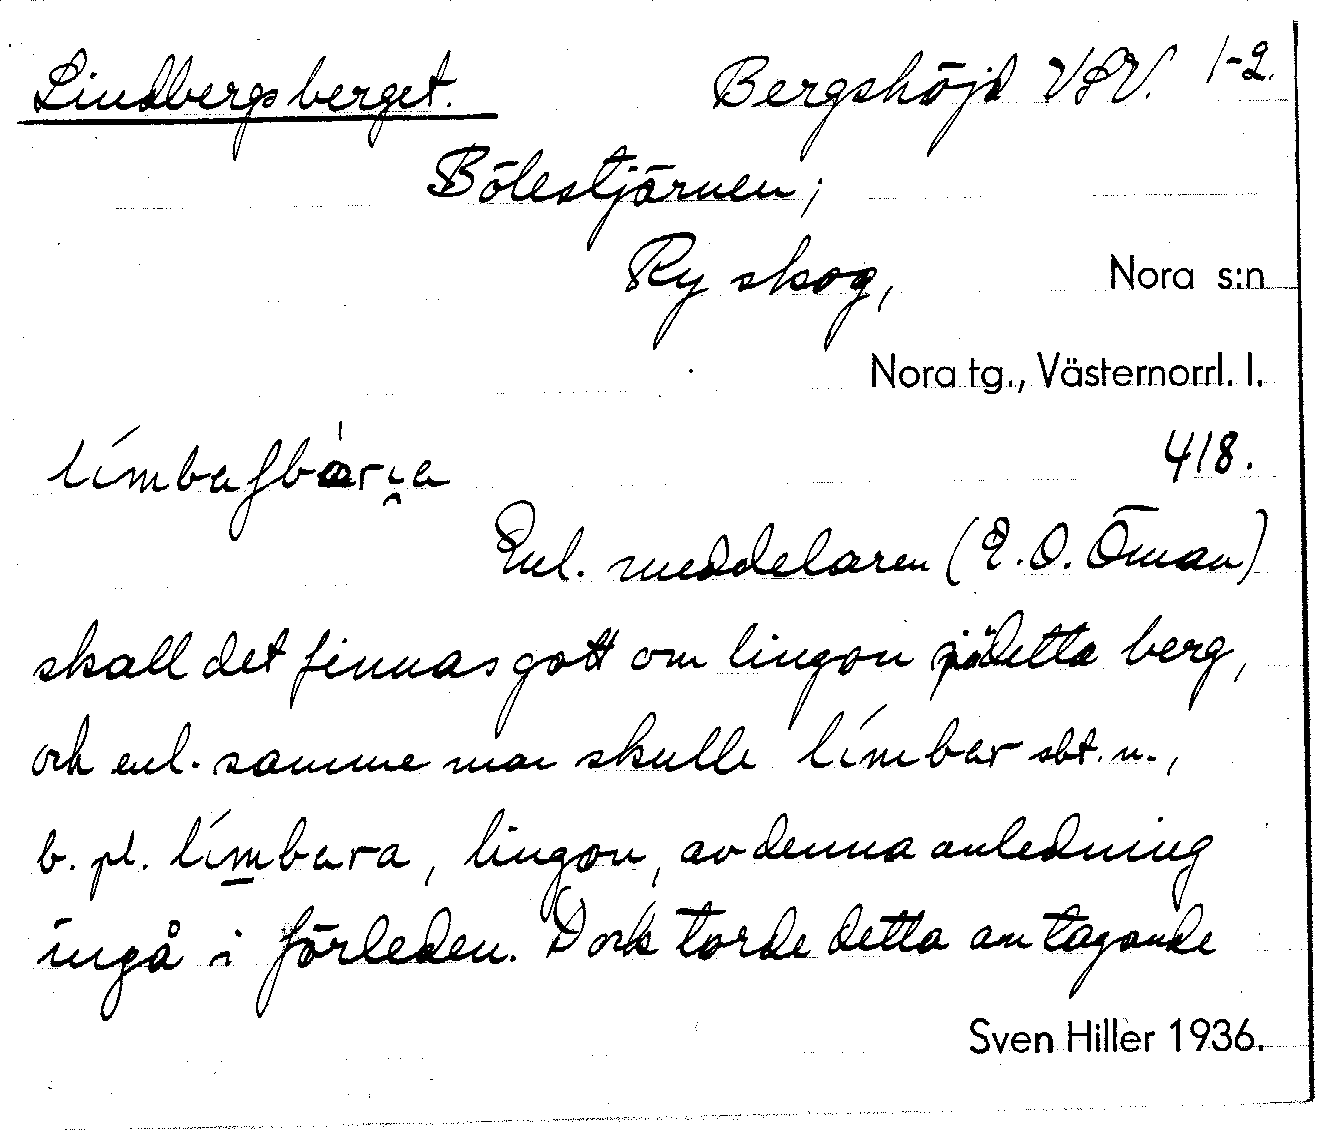 Lindbergsberget. Bergshöjd VSV. 1-2.
Bölestjärnen;
Ry skog, Nora s:n
Nora tg., Västernorrl. l.
418.
Enl. meddelaren (E. O. Öman)
skall det finnas gott om lingon på detta berg,
och enl. samme man skulle límbar sbt. n.,
b. pl. límbara, lingon, av denna anledning
ingå i förleden. Dock torde detta antagande
Sven Hiller 1936.